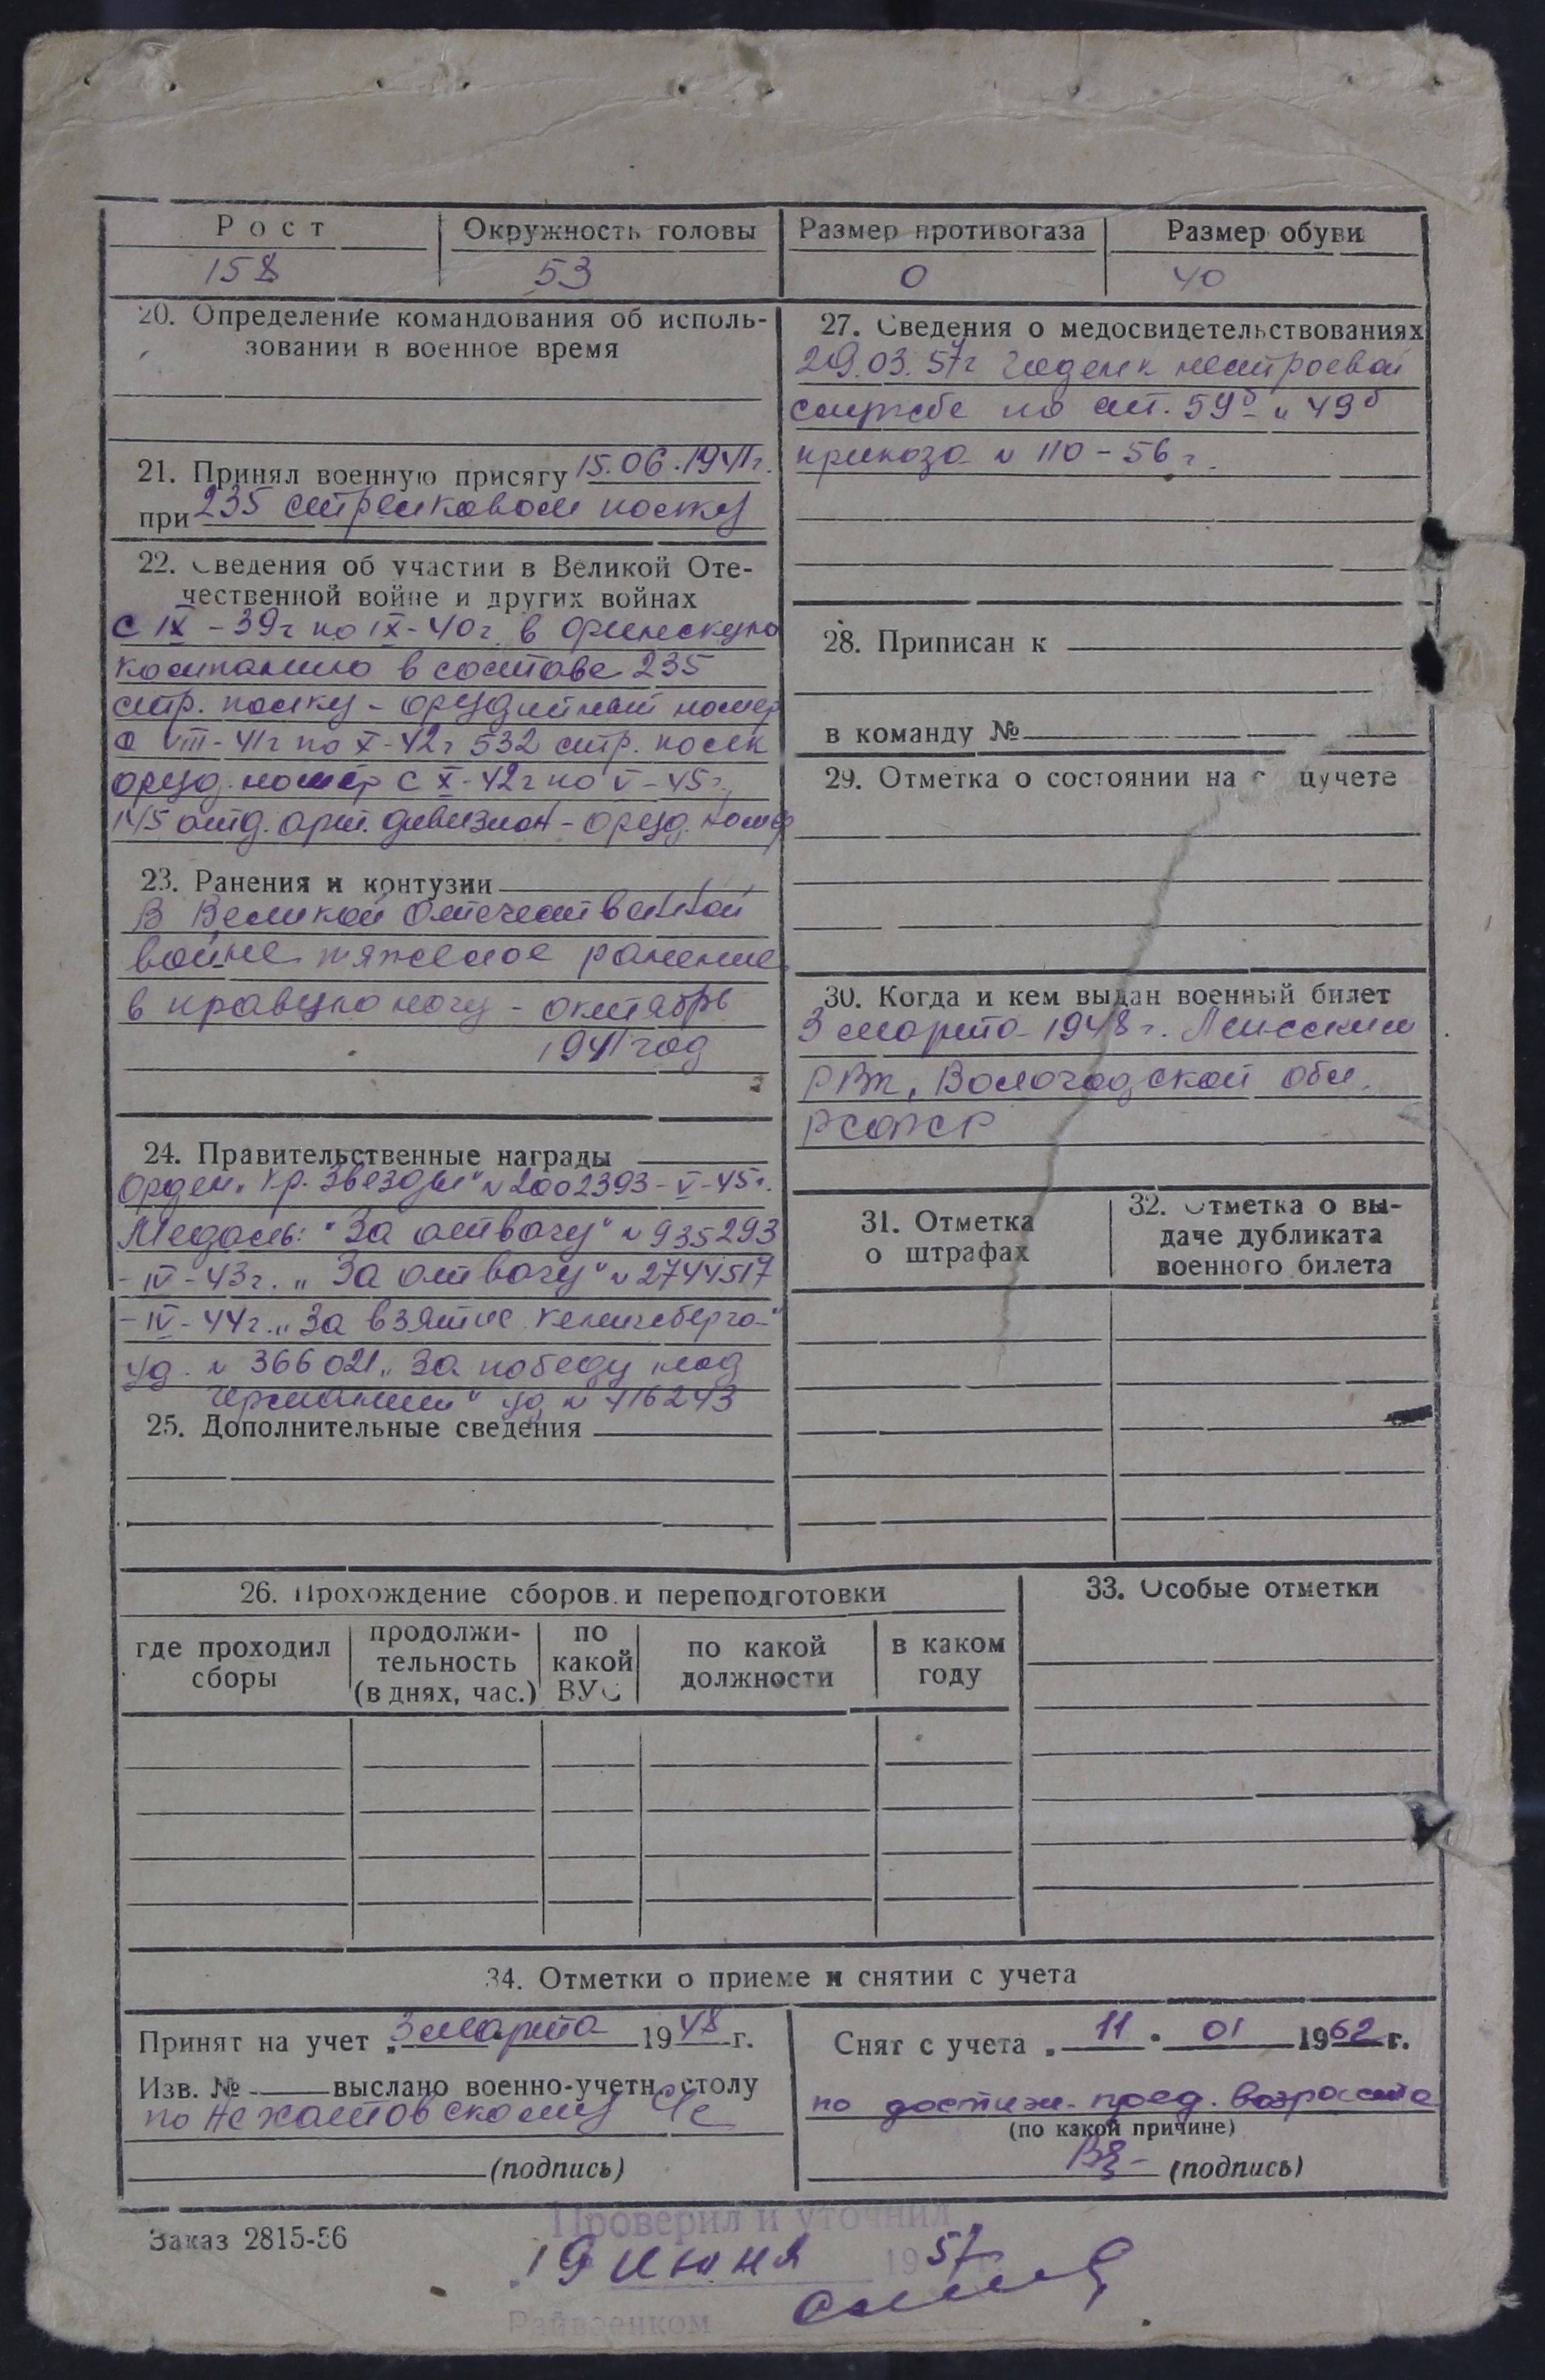 Рост
Окружность головы
Размер противогаза
Размер обуви
158
53
0
40
20. Определение командования об исполь-
зовании в военное время
21. Принял военную присягу 15.06.1941г.
при 235 стрелковом полку
22. Сведения об участии в Великой Оте-
чественной войне и других войнах
с IX-39г по IX-40г. в финскую
компанию в составе 235
стр. полку - орудийный номер
с VIII-41г по X-42г 532 стр. полк
оруд. номер с X-42г по V-45г.
145 отд. арт. дивизион - оруд. номер
23. Ранения и контузии
В Великой Отечественной
войне тяжелое ранение
в правую ногу - октябрь
1941 год
24. Правительственные награды
Орден „Кр. Звезды" № 2002393-V-45г.
Медаль: "За отвагу" № 935293
-IV-43г. „За отвагу" № 2744517
-IV-44г. „За взятие Кенигсберга"
уд. № 366021 „За победу над
Германией" уд № 416243
25. Дополнительные сведения
27. Сведения о медосвидетельствованиях
29.03.57г годен к нестроевой
службе по ст. 59б и 49б
приказа № 110-56г.
28. Приписан к
в команду №
29. Отметка о состоянии на цучете
30. Когда и кем выдан военный билет
3 марта 1948г.
РВК, Вологодской обл.
РСФСР
31. Отметка
о штрафах
32. Отметка о вы-
даче дубликата
военного билета
26. Прохождение сборов и переподготовки
где проходил
сборы
продолжи-
тельность
(в днях, час.)
по
какой
ВУС
по какой
должности
в каком
году
33. Особые отметки
34. Отметки о приеме и снятии с учета
Принят на учет „3 марта 1948 г.
Изв. № выслано военно-учетн. столу
по
(подпись)
Снят с учета „11 " 01 1962 г.
по достиж. пред. возраста
(по какой причине)
(подпись)
Заказ 2815-56
Проверил и уточнил
„19 июня 1957
Райвоенком